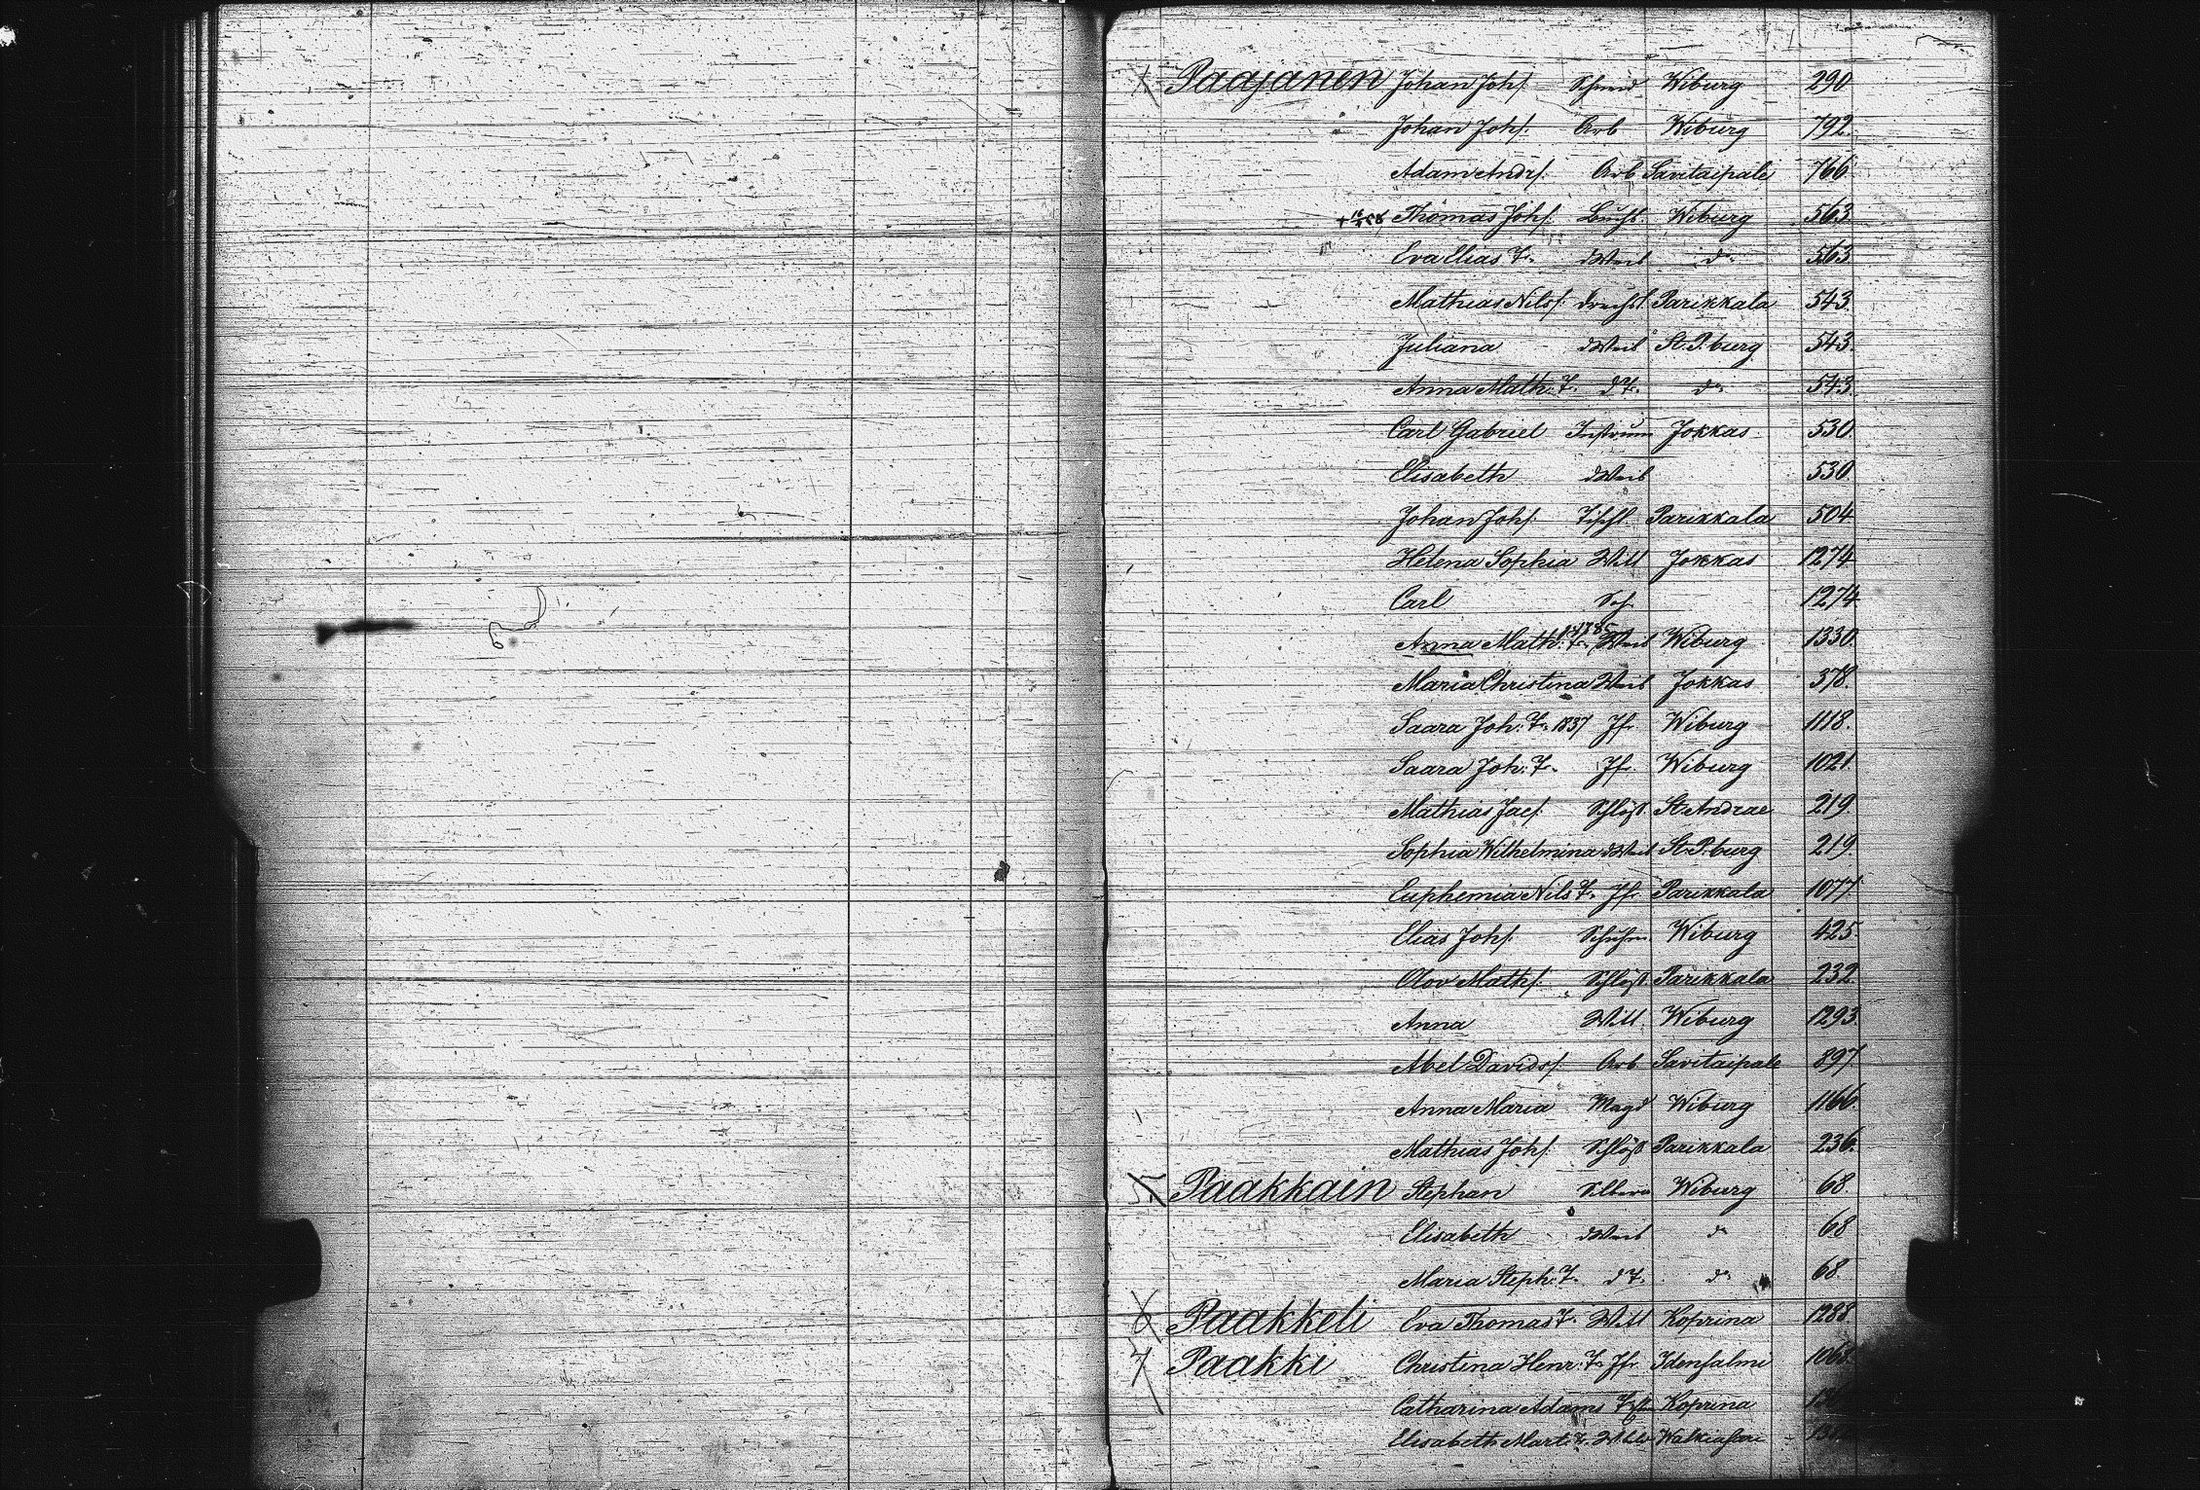 Paajanen Johan Johs. Schmid Wiburg 290
Johan Johs. Arb Wiburg 792.
Adam Andrs. Arb Savitaipale 766
Thomas Johs. Wiburg 563
Eva Elias T. d Weib do 563
Mathias Nils s. Drechsl. Parikkala 543.
Juliana d Weib St. P. burg 543.
Anna Math. T. d T. do 543.
Carl Gabriel Instrum Jokkas 530.
Elisabeth d Weib 530
Johan Johs. Tischl. Parikkala 504
Helena Sophia Witt Jokkas 1274
Carl 1274
Anna Math. T. Weib Wiburg 1330.
Maria Christina Weib Jokkas 378.
Saara Joh. T. 1837 Jfr. Wiburg 1118.
Saara Joh. T. Jfr. Wiburg 1021.
Mathias Jacs. Schloss St Andrae 219.
Sophia Wilhelmina d Weib St. P. burg 219.
Euphemia Nils T. Jfr. Parikkala 1077.
Elias Johs. Schuhm Wiburg 425
Olov Maths. Schloss. Parikkala 232.
Anna Witt. Wiburg 1293.
Abel Davids s. Arb. Savitaipale 897
Anna Maria Magd Wiburg 1166.
Mathias Johs. Schloss Parikkala 236.
5 Paakkain Stephan Silbera Wiburg 68
Elisabeth d Weib do 68
Maria Steph. T. d T. do 68.
6 Paakkeli Eva Thomas T. Witt Koprina 1288.
7 Paakki Christina Henr. T. Jfr. Idensalmi 1068.
Catharina Adams T. Koprina
Elisabeth Mart. T. Walkeasaari